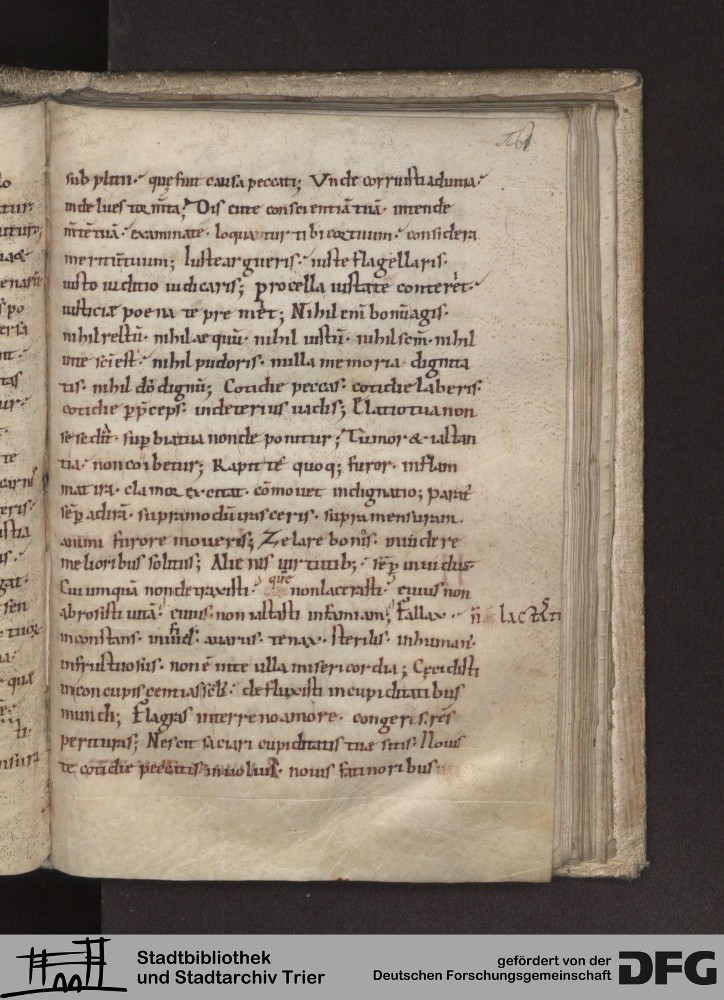 161
sub plitti· quę sint causa peccati; Unde corruisti adunia·
inde lues tormta; Discute conscientiā tuā· intende
mtē tuā· examina te· loquatur tibi cor tuum· considera
meritū tuum; Iuste argueris· iuste flagellaris·
iusto iuditio iudicaris; procella iustate conteret·
iusticiæ poena te premet; Nihil enī bonū agis·
nihil restū· nihil æquū· nihil iustū· nihil scm̄· nihil
in te sci est· nihil pudoris· nulla memoria dignita
tis· nihil dō dignū; Cotidie peccas· cotidie laberis·
cotidie p̄ceps· in deterius uadis; Elatio tua non
se sedat· supbia tua non deponitur; Tumor & iactan
tia· non cohibetur; Rapit te quoq; furor· inflam
mat ira· clamor excitat· cōmouet indignatio; paratꝰ
sēp ad irā· supra modū irasceris· supra mensuram·
animi furore moueris; Zelare bonis· inuidere
melioribus solitus; Alienis uirtutib;· sēp inuidus·
Cui umquā non detraxisti· quē non lacerasti· cuius non
abrosisti uitā· cuius non iactasti infamiam; Fallax·
n̄ lactasti
inconstans· infid· auarus· tenax· sterilis· inhuman·
infructuosus· non ē in te ulla misericordia; Cecidisti
in concupiscentias secli· defluxisti in cupiditatibus
mundi; Flagras in terreno amore· congeris res
perituras; Nescit saciari cupiditatis tuæ sitis· Nouis
te cotidie peccatis inuoluis· nouis facinoribus
Stadtbibliothek
und Stadtarchiv Trier
gefördert von der
Deutschen Forschungsgemeinschaft
DFG